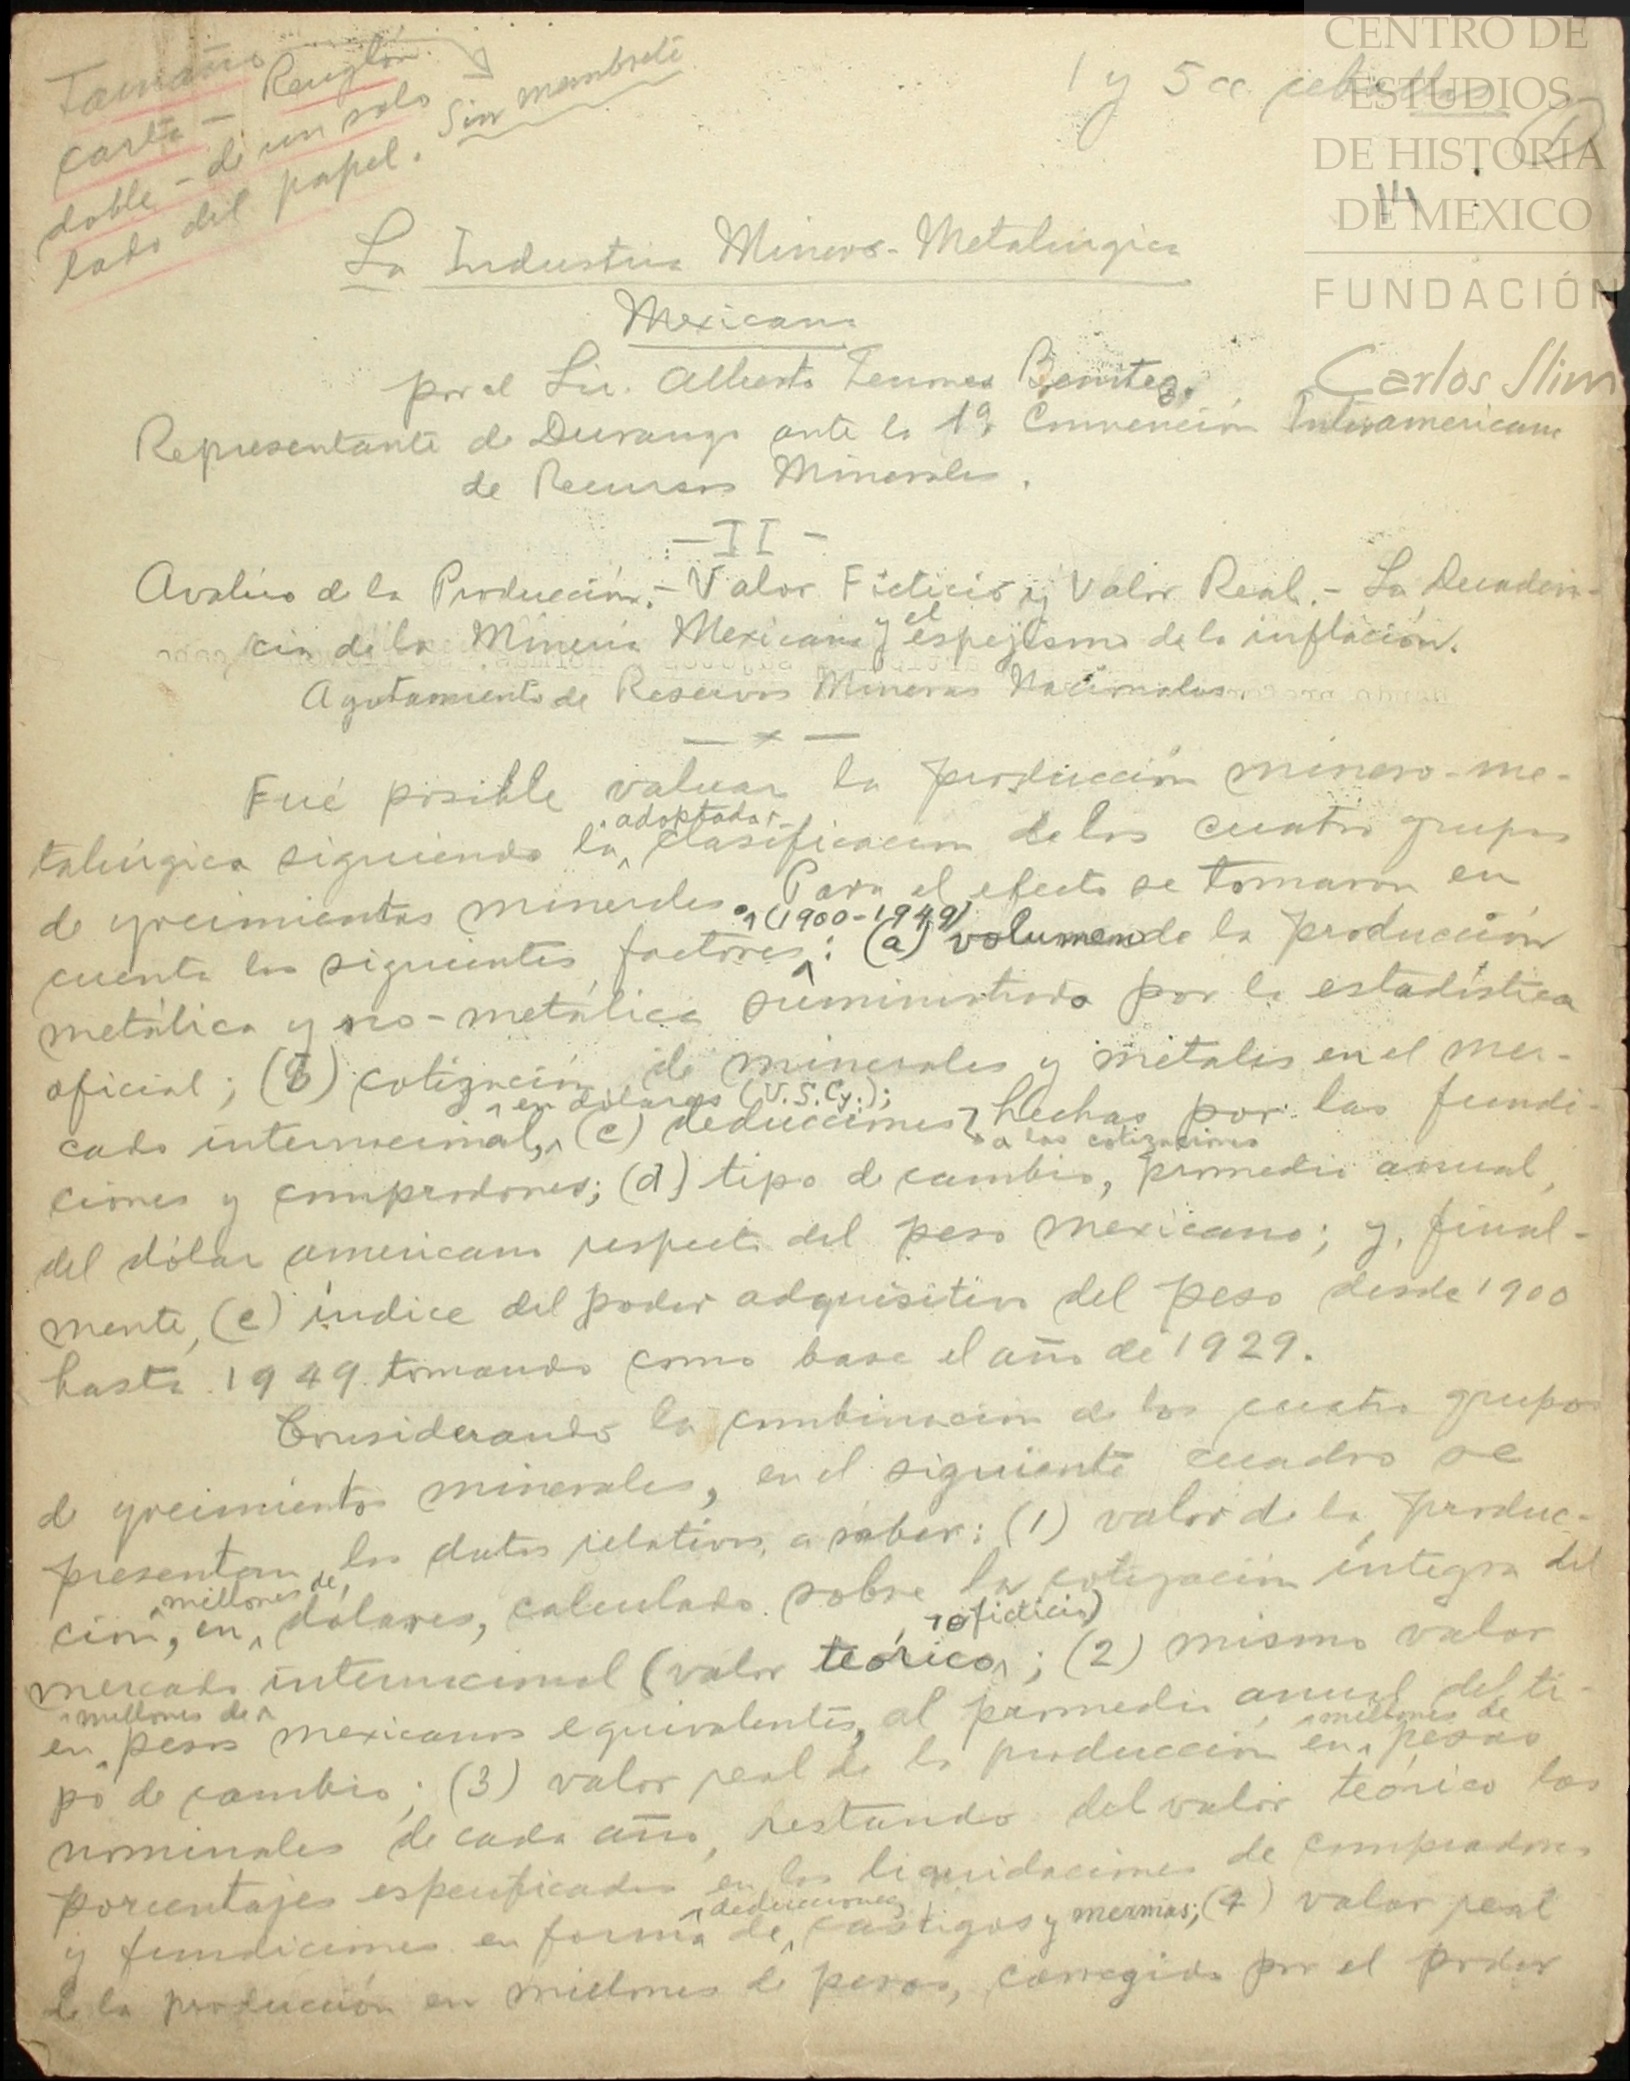 Tamaño
carta - Renglón
doble - de un solo
lado del papel. Sin membrete
1 y 5 cc
CENTRO DE
ESTUDIOS
DE HISTORIA
DE MEXICO
FUNDACIÓN
Carlos Slim
La Industria Minero-Metalúrgica
Mexicana
por el Lic. Alberto Terrones Benítez,
Representante de Durango ante la 1ª Convención Interamericana
de Recursos Minerales.
- II -
Avalúo de la Producción.- Valor Ficticio y Valor Real.- La Decaden-
cia de la Minería Mexicana y el espejismo de la inflación.
Agotamiento de Reservas Mineras Nacionales.
— x —
Fué posible valuar la producción minero-me-
talúrgica siguiendo la adoptada clasificacion de los cuatro grupos
de yacimientos minerales. Para el efecto se tomaron en
cuenta los siguientes factores (1900-1949): (a) volumen de la producción
metálica y no-metálica suministrado por la estadística
oficial; (b) cotización de minerales y metales en el mer-
cado internacional, en dólares (U.S.Cy.); (c) deducciones a las cotizaciones hechas por las fundi-
ciones y compradores; (d) tipo de cambio, promedio anual,
del dólar americano respecto del peso mexicano; y, final-
mente, (e) índice del poder adquisitivo del peso desde 1900
hasta 1949 tomando como base el año de 1929.
Considerando la combinacion de los cuatro grupos
de yacimientos minerales, en el siguiente cuadro se
presentan los datos relativos, a saber: (1) valor de la produc-
ción, en millones de dólares, calculado sobre la cotización íntegra del
mercado internacional (valor teórico o ficticio); (2) mismo valor
en millones de pesos mexicanos equivalentes, al promedio anual del ti-
po de cambio; (3) valor real de la producción en millones de pesos
nominales de cada año, restando del valor teórico los
porcentajes especificados en las liquidaciones de compradores
y fundiciones en forma de deducciones, castigos y mermas; (4) valor real
de la producción en millones de pesos, corregido por el poder